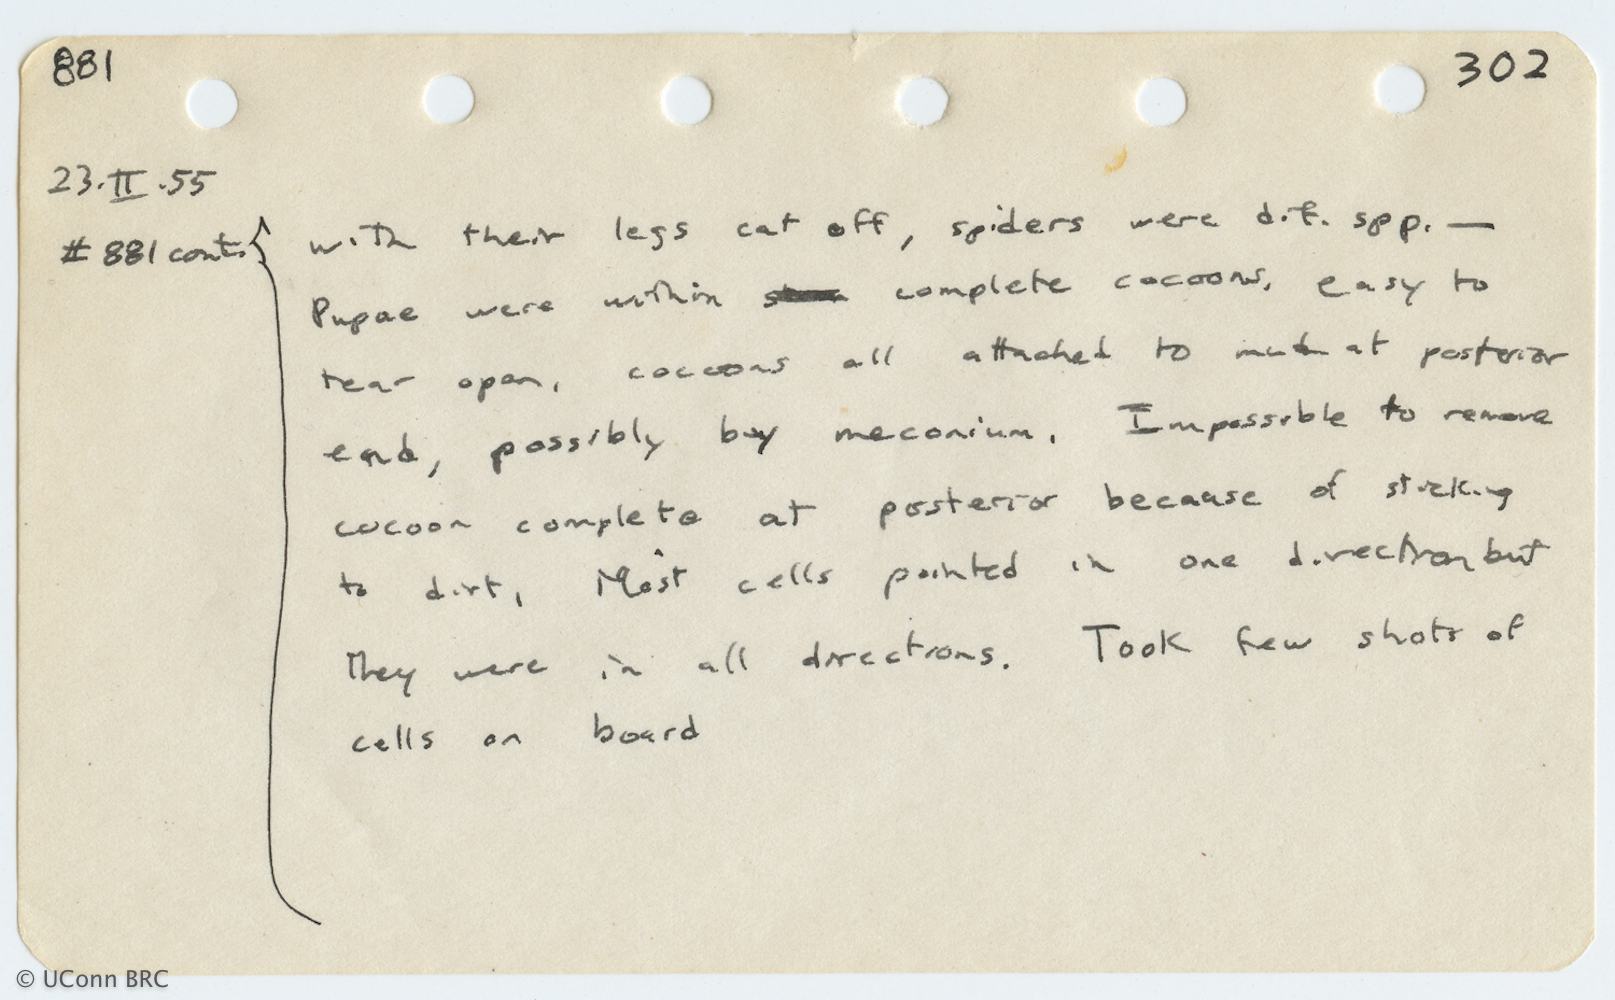 881 302
23.II.55
# 881 cont. with their legs cut off, spiders were dif. spp. —
Pupae were within complete cocoons, easy to
tear open, cocoons all attached to mud at posterior
end, possibly by meconium. Impossible to remove
cocoon complete at posterior because of sticking
to dirt, Most cells pointed in one direction but
they were in all directions. Took few shots of
cells on board
© UConn BRC